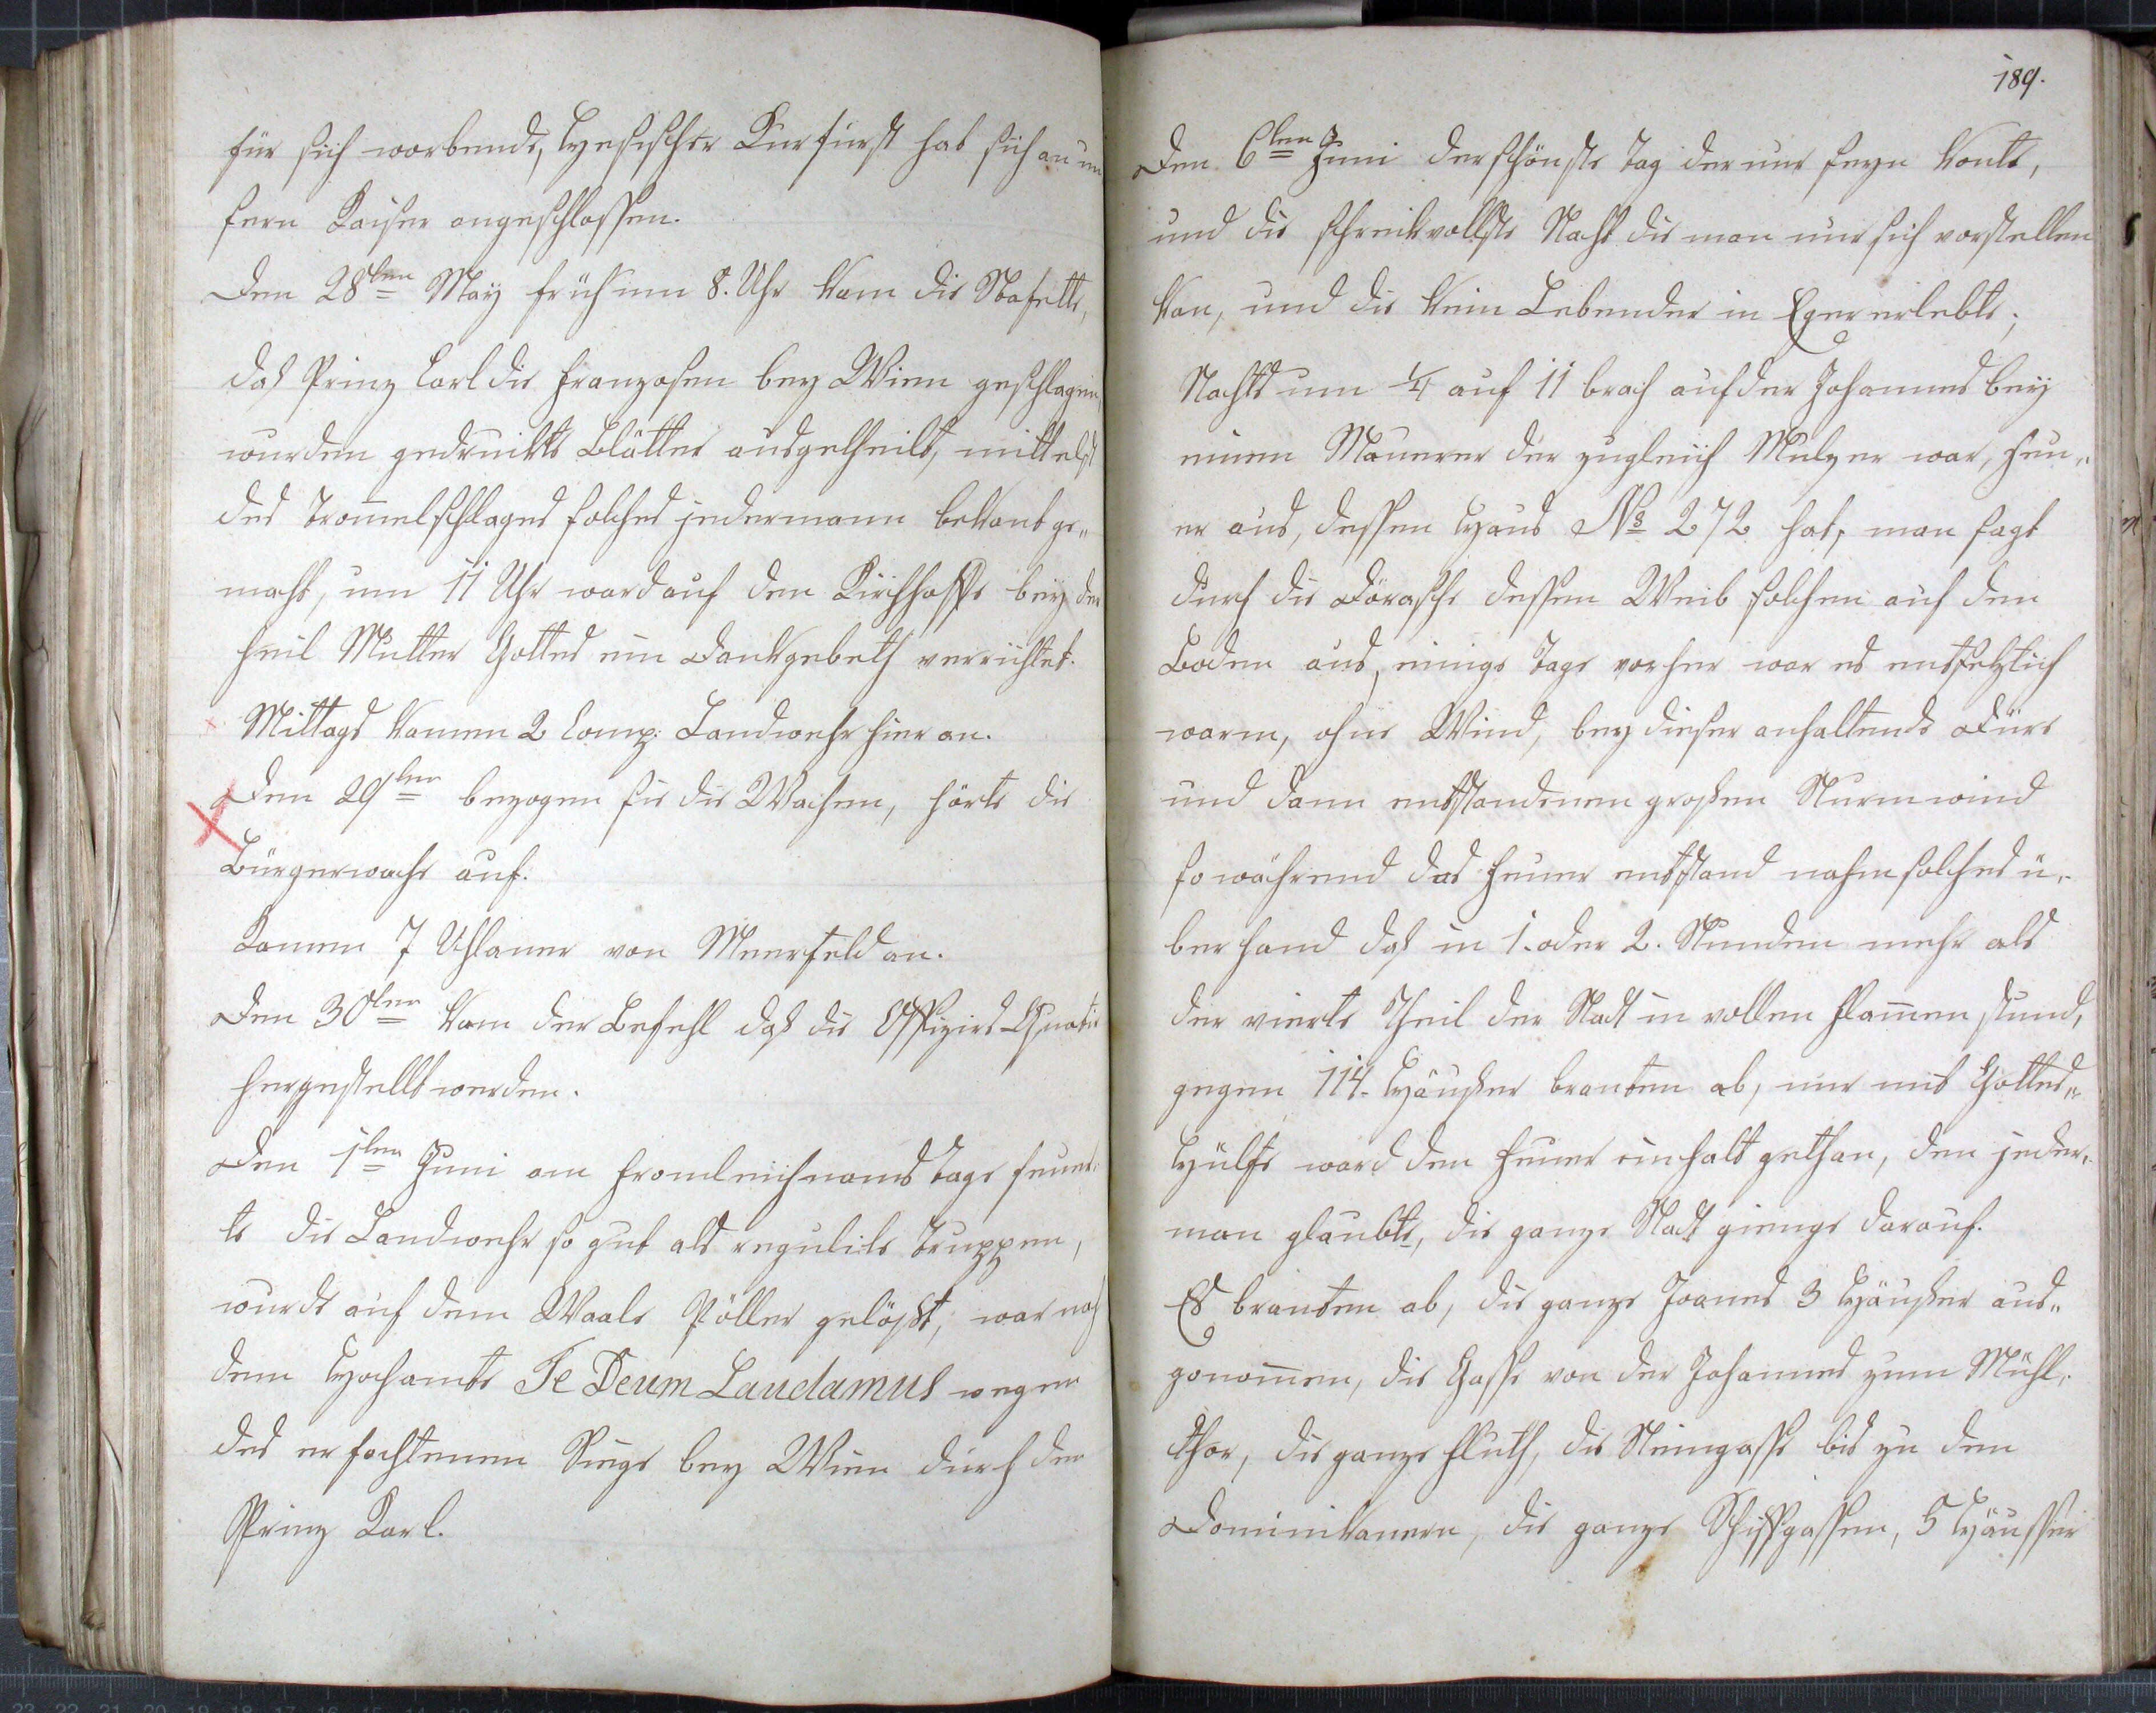 für sich werbende, Hessischer Kurfürst hat sich an un
sern Kaiser angeschlossen.
Den 28ten May früh um 8. Uhr kam die Stafette,
daß Prinz Carl die Franzosen bey Wien geschlagen,
wurden gedruckte Blätter ausgetheilt, mittelst
des Tromelschlages solches jedermann bekant ge„
macht, um 11 Uhr ward auf den Kirchhoffe bey der
heil Mutter Gottes ein Dankgebeth verrichtet.
Mittags kamen 2 Comp: Landwehr hier an.
Den 29ten bezogen sie die Wachen, hörte die
Bürgerwache auf.
Kamen 7 Uhlaner von Meerfeld an.
Den 30ten kam der Befehl daß die Offizirs Quatir
hergestellt werden.
Den 1ten Juni am Fronleichnams Tage feuer„
te die Landwehr so gut als regulite Truppen,
wurde auf dem Waale Pöller gelößt, war nach
dem Hochamte Te Deum Laudamus wegen
des erfochtenen Siege bey Wien durch den
Prinz Karl.
189.
Den 6ten Juni der schönste Tag der nur seyn konte,
und die schreckvollste Nacht die man nur sich vorstellen
kan, und die kein Lebender in Eger erlebte;
Nachts um 1/4 auf 11 brach auf der Johannes bey
einen Maurer der zugleich Mulzer war, Feu„
er aus, dessen Haus No 272 hat, man sagt
durch die dessen Weib solchen auf den
Boden aus, einige Tage vorher war es entsetzlich
warm, ohne Wind, bey dieser anhaltende Dürre
und dann entstandenen großen Sturmwind
so während das Feuer entstand nahm solches ü„
berhand daß in 1. oder 2. Stunden mehr als
der vierte Theil der Stadt in vollen Flamen stund,
gegen 114. Häußer branten ab, nur mit Gottes„
Hülfe ward den Feuer einhalt gethan, den jeder„
man glaubte, die ganze Stadt gienge darauf.
Es branten ab, die ganze Joanes 3 Häußer aus„
genomen, die Gasse von der Johannes zum Mühl„
thor, die ganze Fluth, die Steingasse bis zu den
Dominikanern, die ganze Schiffgassen, 5 Häusser